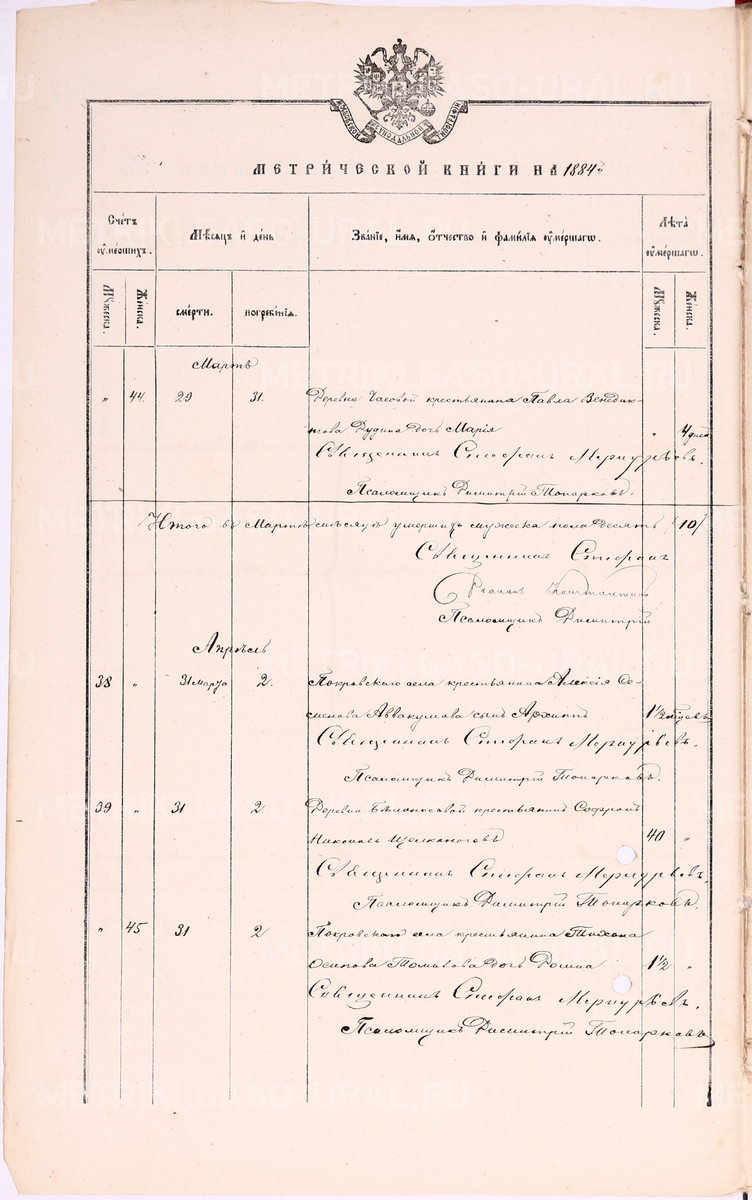 МОСКОВСКОЙ СУНОДАЛЬНОЙ ТИПОГРАФІИ
МЕТРИЧЕСКОЙ КНИГИ НА 1884 й
Счетъ умершихъ. Мѣсяцъ и день Званіе, имя, отчество и фамилія умершаго. Лѣта умершаго.
Мужеска. Женска. смерти. погребенія. Мужеска. Женска.
Мартъ
„ 44. 29 31. Деревни Часовой крестьянина Павла Венедик-
това Дудина дочь Марія „ 4 дней
Священникъ Стефанъ Меркурьевъ.
Псаломщикъ Димитрій Топорковъ.
Итого въ Мартѣ мѣсяцѣ умершихъ мужеска пола десять /10/
Священникъ Стефанъ
Діаконъ Константинъ
Псаломщикъ Димитрій
Апрѣль
38 „ 31 марта 2. Покровскаго села крестьянина Алексія Се-
менова Аввакумова сынъ Архиппъ 1½ мѣсцевъ
Священникъ Стефанъ Меркурьевъ.
Псаломщикъ Димитрій Топорковъ.
39 „ 31 2. Деревни Бѣлоносовой крестьянинъ Софроній
40 „
Священникъ Стефанъ Меркурьевъ.
Псаломщикъ Димитрій Топорковъ.
„ 45 31 2 Покровскаго села крестьянина Тихона
Осипова дочь 1½ „
Священникъ Стефанъ Меркурьевъ.
Псаломщикъ Димитрій Топорковъ
METRIKI.GASO-URAL.RU